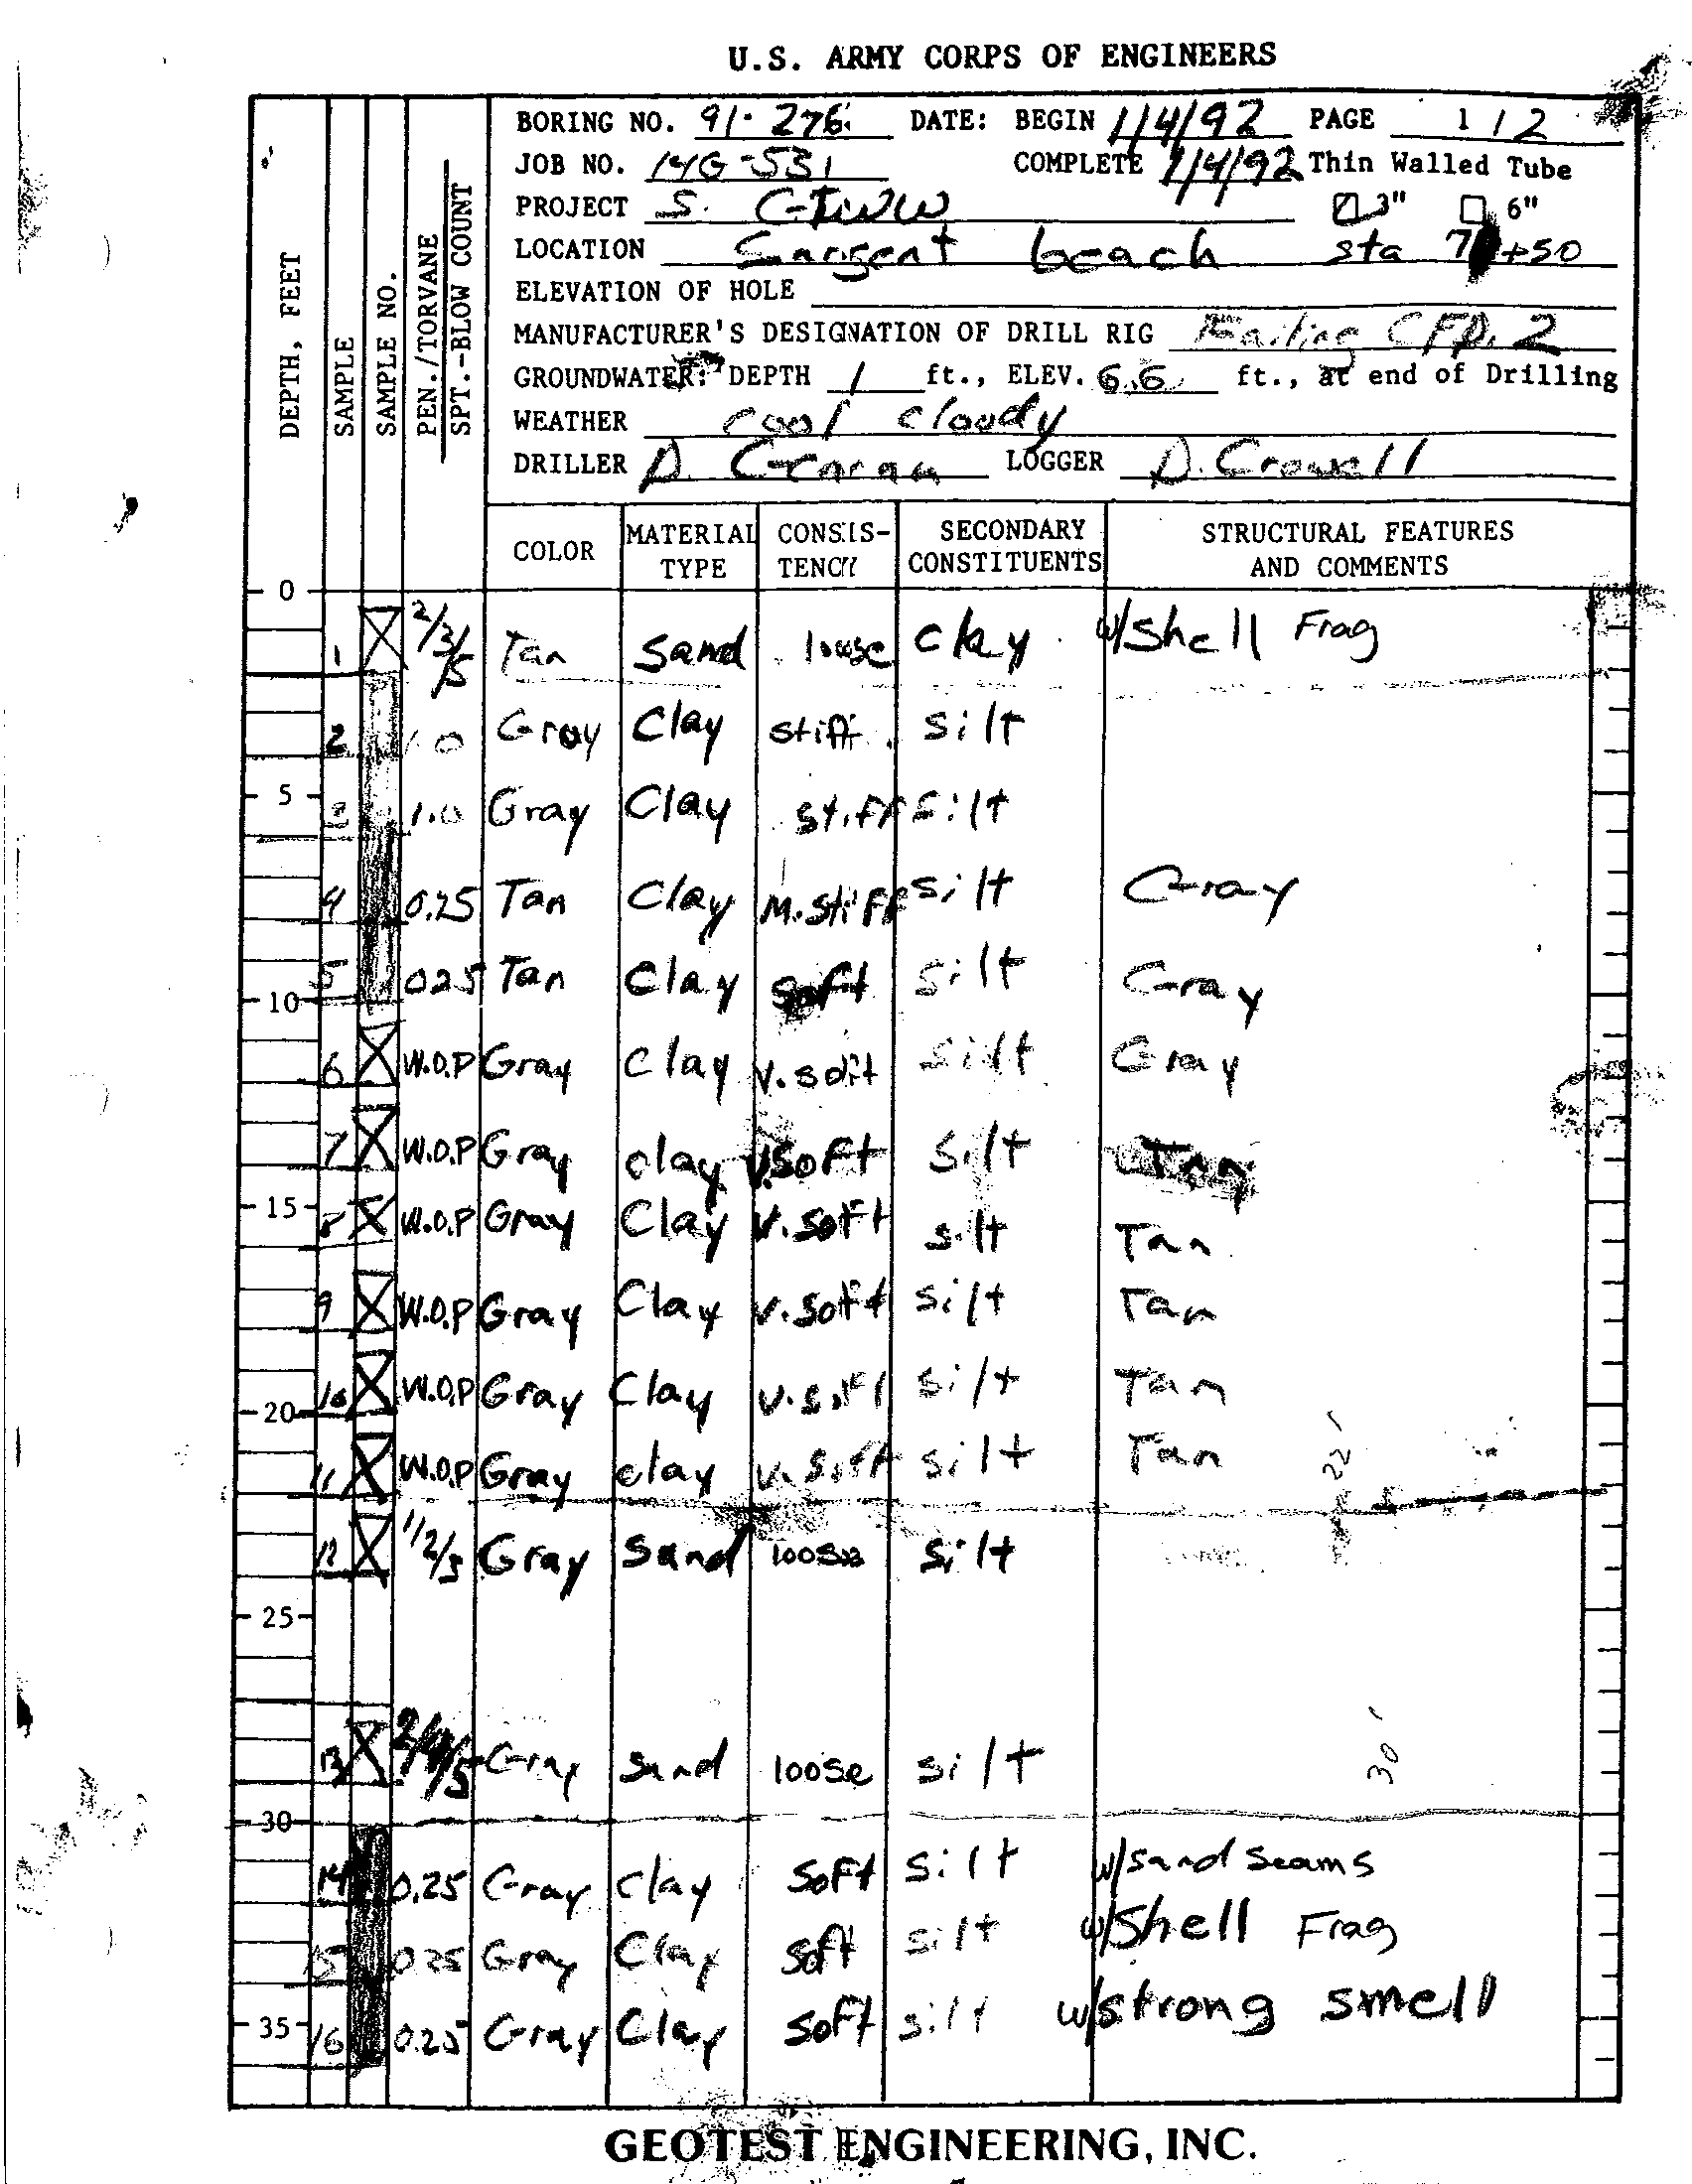 U.S. ARMY CORPS OF ENGINEERS
BORING NO. 91-276 DATE: BEGIN 1/4/92 PAGE 1 / 2
JOB NO. 14G-531 COMPLETE 1/4/92 Thin Walled Tube
PROJECT S. GIWW 3" 6"
LOCATION Sargent beach sta +50
ELEVATION OF HOLE
MANUFACTURER'S DESIGNATION OF DRILL RIG Failing CFD. 2
GROUNDWATER: DEPTH 1 ft., ELEV. 6.6 ft., at end of Drilling
WEATHER cool cloudy
DRILLER D. LOGGER D. Crowell
DEPTH, FEET SAMPLE SAMPLE NO. PEN./TORVANE SPT.-BLOW COUNT
COLOR MATERIAL TYPE CONSIS-TENCY SECONDARY CONSTITUENTS STRUCTURAL FEATURES AND COMMENTS
0
1 2/3/5 Tan Sand loose clay w/Shell Frag
2 1.0 Gray Clay stiff silt
5
3 1.0 Gray Clay stiff silt
4 0.25 Tan Clay M.stiff silt Gray
5 0.25 Tan Clay soft silt Gray
10
6 W.O.P Gray Clay v.soft silt Gray
7 W.O.P Gray clay v.soft silt Tan
15
8 W.O.P Gray Clay v.soft silt Tan
9 W.O.P Gray Clay v.soft silt Tan
10 W.O.P Gray Clay v.soft silt Tan
20
11 W.O.P Gray clay v.soft silt Tan
22'
12 1/2/3 Gray Sand loose silt
25
13 2/4/5 Gray Sand loose silt
30'
30
14 0.25 Gray clay soft silt w/sand seams
15 0.25 Gray Clay soft silt w/Shell Frag
35
16 0.25 Gray Clay soft silt w/strong smell
GEOTEST ENGINEERING, INC.